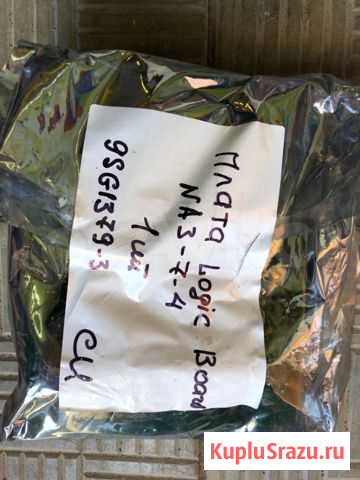 Плата Logic Board
NA3-7-4
1 шт
9SG1379-3
KupluSrazu.ru